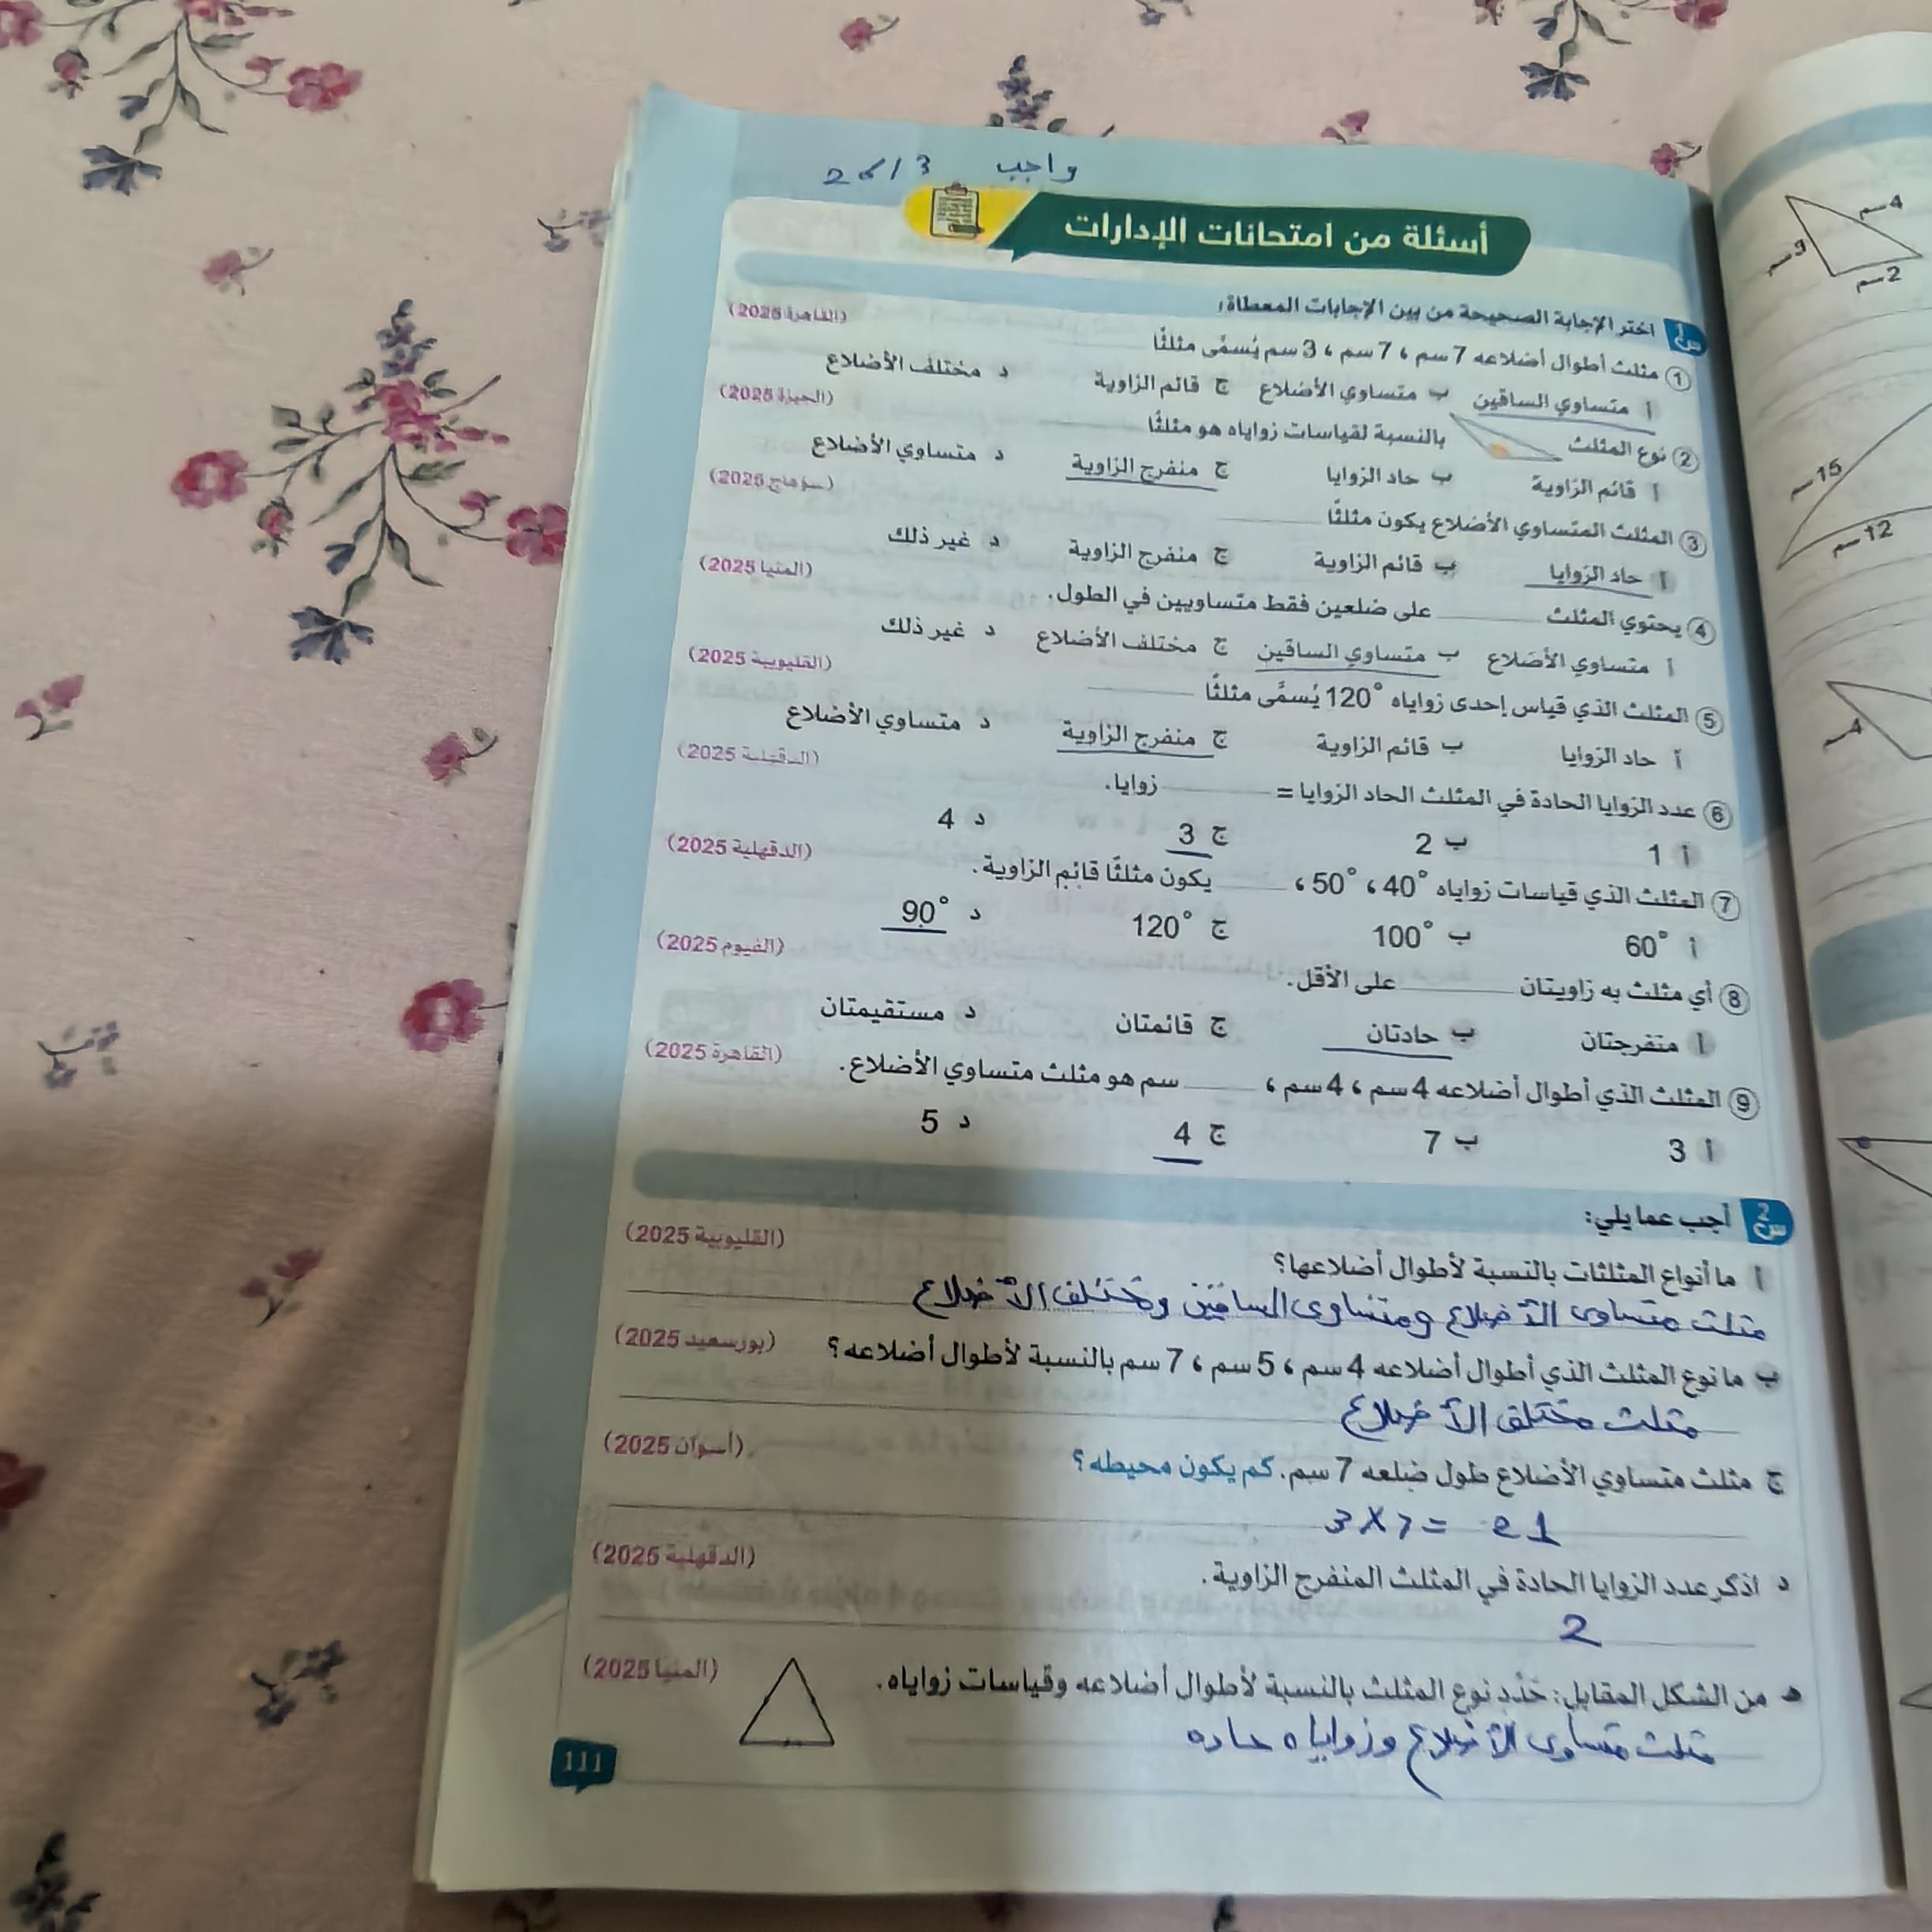 واجب 26/3
أسئلة من امتحانات الإدارات
س1 اختر الإجابة الصحيحة من بين الإجابات المعطاة:
1 مثلث أطوال أضلاعه 7 سم ، 7 سم ، 3 سم يُسمَّى مثلثًا (القاهرة 2025)
أ متساوي الساقين ب متساوي الأضلاع ج قائم الزاوية د مختلف الأضلاع
2 نوع المثلث بالنسبة لقياسات زواياه هو مثلثًا (الجيزة 2025)
أ قائم الزاوية ب حاد الزوايا ج منفرج الزاوية د متساوي الأضلاع
3 المثلث المتساوي الأضلاع يكون مثلثًا (سوهاج 2025)
أ حاد الزوايا ب قائم الزاوية ج منفرج الزاوية د غير ذلك
4 يحتوي المثلث على ضلعين فقط متساويين في الطول. (المنيا 2025)
أ متساوي الأضلاع ب متساوي الساقين ج مختلف الأضلاع د غير ذلك
5 المثلث الذي قياس إحدى زواياه 120° يُسمَّى مثلثًا (القليوبية 2025)
أ حاد الزوايا ب قائم الزاوية ج منفرج الزاوية د متساوي الأضلاع
6 عدد الزوايا الحادة في المثلث الحاد الزوايا = زوايا. (الدقهلية 2025)
أ 1 ب 2 ج 3 د 4
7 المثلث الذي قياسات زواياه 40° ، 50° ، يكون مثلثًا قائم الزاوية. (الدقهلية 2025)
أ 60° ب 100° ج 120° د 90°
8 أي مثلث به زاويتان على الأقل. (الفيوم 2025)
أ منفرجتان ب حادتان ج قائمتان د مستقيمتان
9 المثلث الذي أطوال أضلاعه 4 سم ، 4 سم ، سم هو مثلث متساوي الأضلاع. (القاهرة 2025)
أ 3 ب 7 ج 4 د 5
س2 أجب عما يلي:
أ ما أنواع المثلثات بالنسبة لأطوال أضلاعها؟ (القليوبية 2025)
مثلث متساوى الأضلاع ومتساوى الساقين ومختلف الأضلاع
ب ما نوع المثلث الذي أطوال أضلاعه 4 سم ، 5 سم ، 7 سم بالنسبة لأطوال أضلاعه؟ (بورسعيد 2025)
مثلث مختلف الأضلاع
ج مثلث متساوي الأضلاع طول ضلعه 7 سم. كم يكون محيطه؟ (أسوان 2025)
3 X 7 = 21
د اذكر عدد الزوايا الحادة في المثلث المنفرج الزاوية. (الدقهلية 2025)
2
هـ من الشكل المقابل: حَدِّد نوع المثلث بالنسبة لأطوال أضلاعه وقياسات زواياه. (المنيا 2025)
مثلث متساوى الأضلاع وزواياه حاده
111
4 سم
3 سم
2 سم
15 سم
12 سم